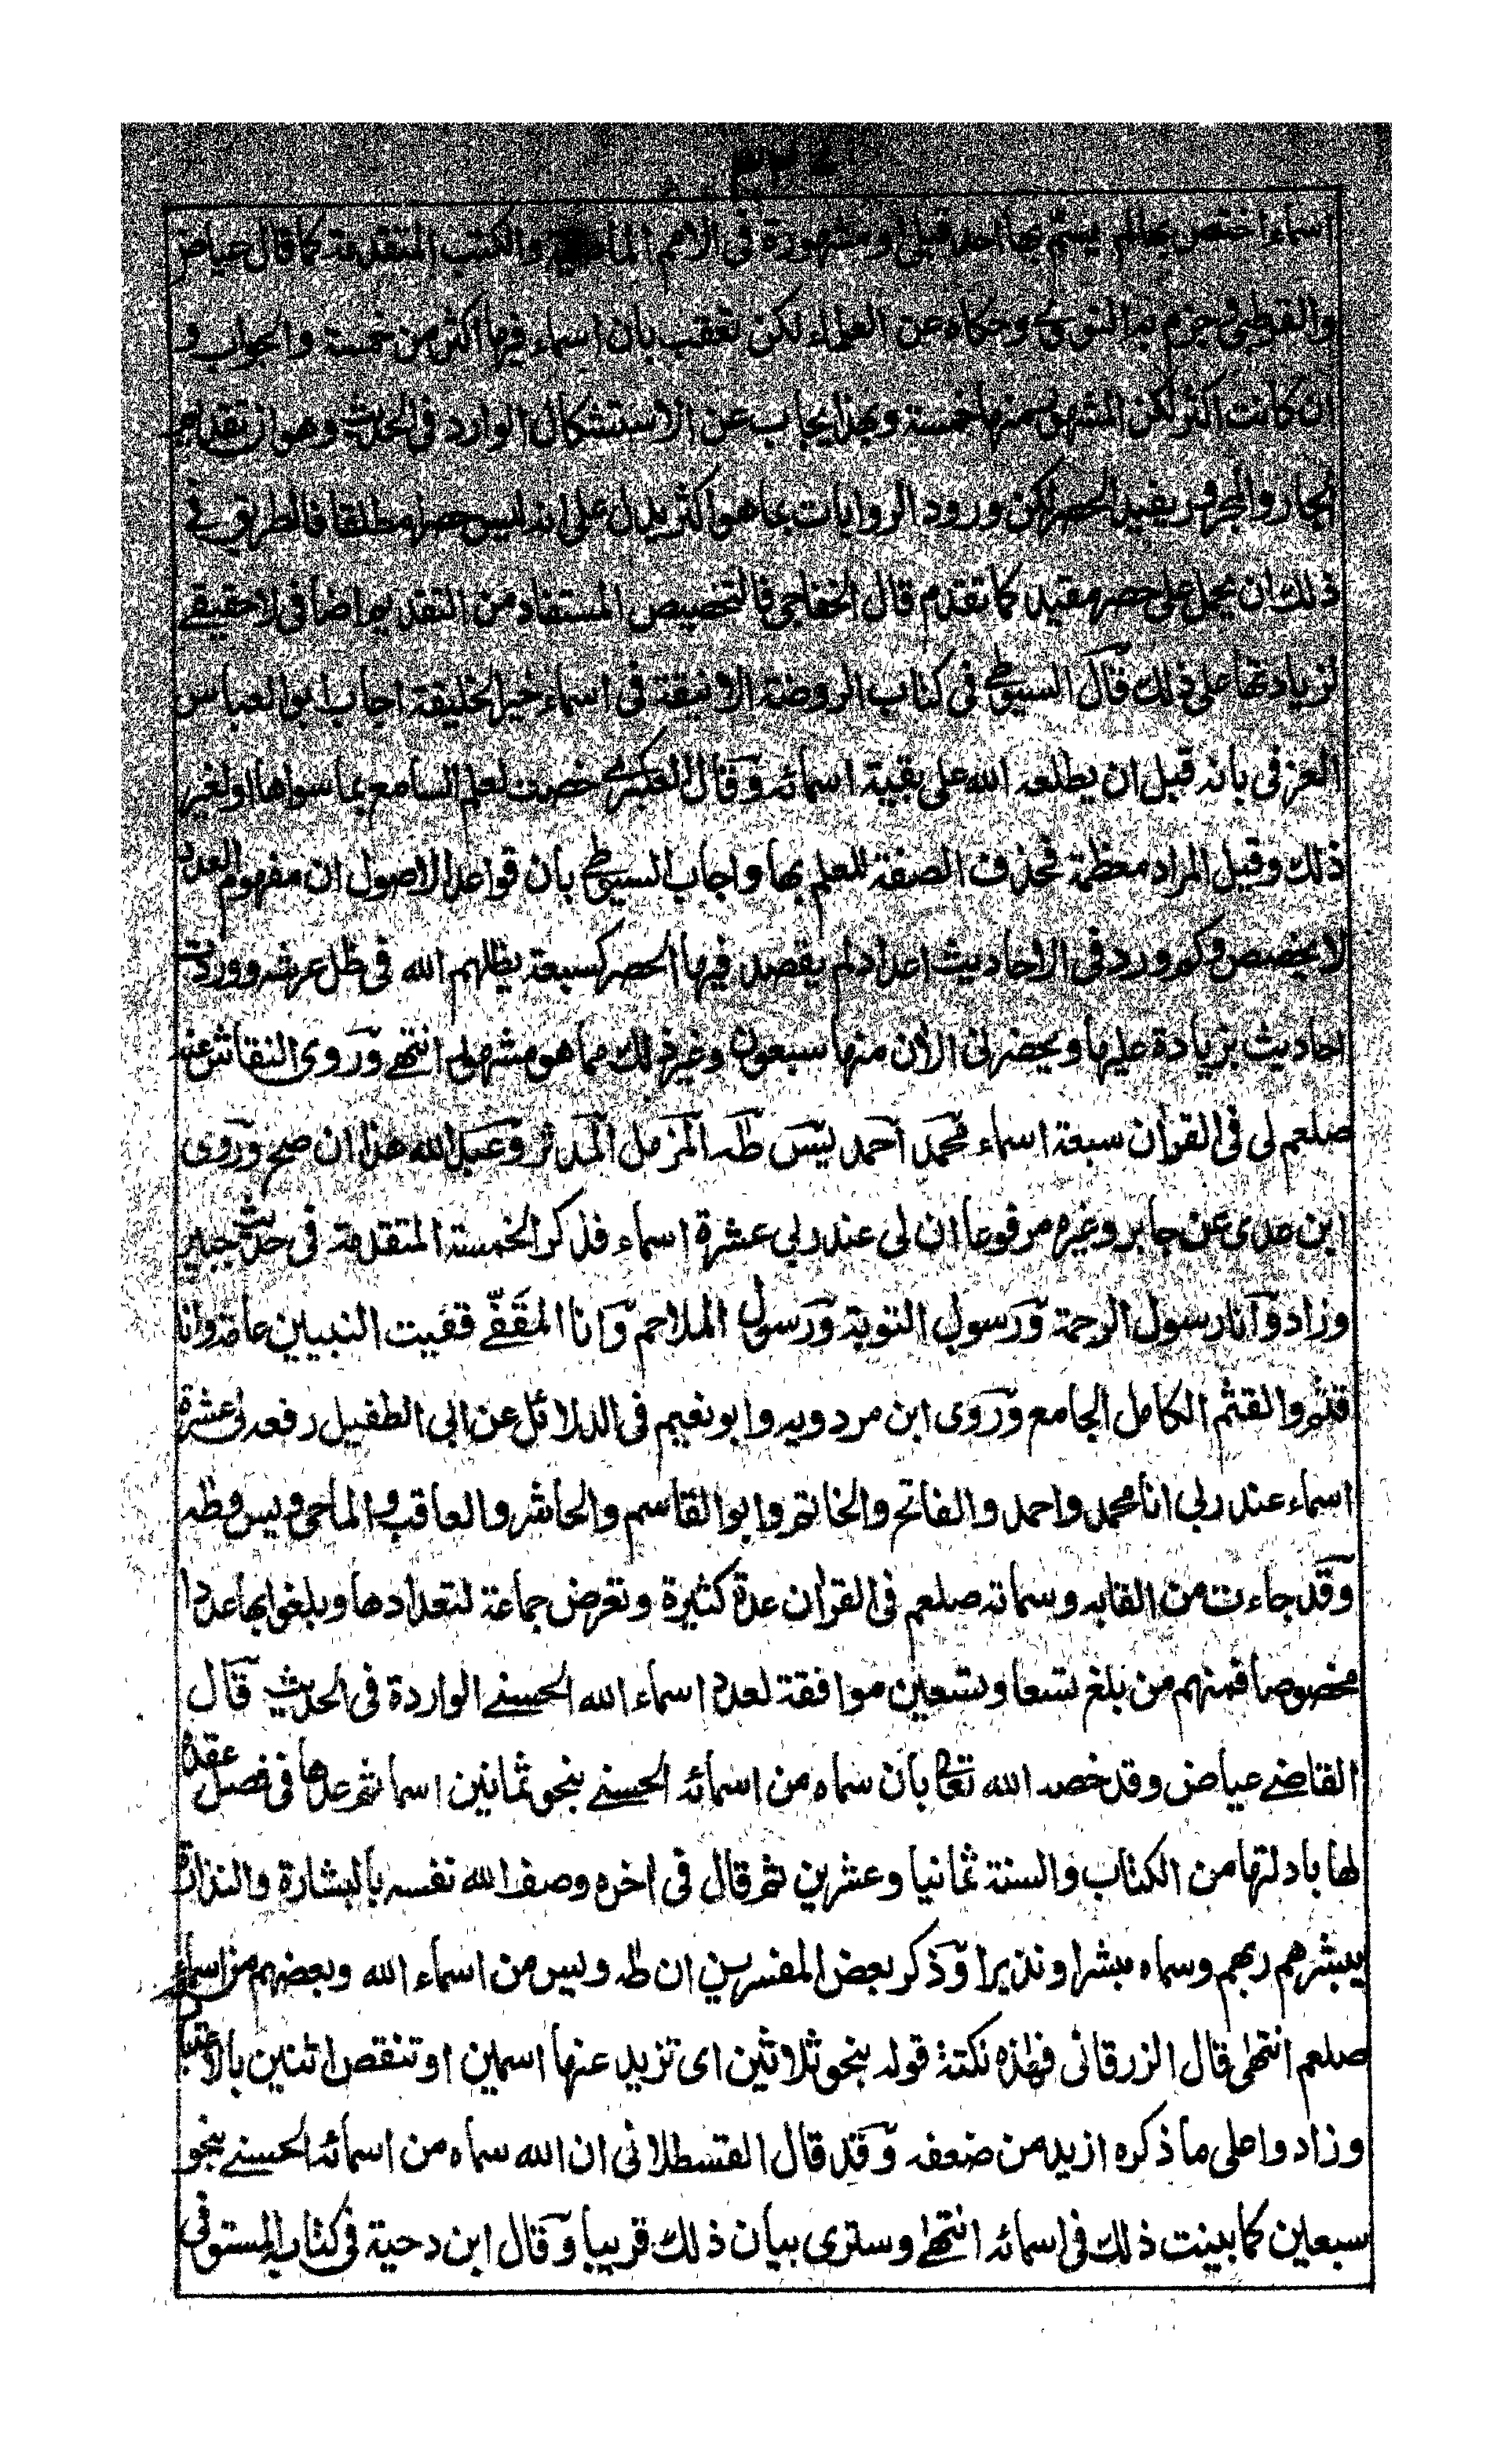 اسماء اختص بها لم يسم بها احد قبلى او مشهورة فى الامم الماضية والكتب المتقدمة كما قال عياض
والقرطبى وجزم به النووى وحكاه عن العلماء لكن تعقب بان اسماءه فيها اكثر من خمسة والجواب و
ان كانت اكثر لكن المشهور منها خمسة وبهذا يجاب عن الاستشكال الوارد فى الحديث وهو ان تقديم
الجار والمجرور يفيد الحصر لكن ورود الروايات بما هو اكثر يدل على انه ليس حصرا مطلقا فالطريق فى
ذلك ان يحمل على حصر مقيد كما تقدم قال الخفاجى فالتخصيص المستفاد من التقديم اضافى لا حقيقے
لزيادتها على ذلك قال السيوطے فى كتاب الروضة الانيقة فى اسماء خير الخليقة اجاب ابو العباس
العزفى بانه قبل ان يطلعه الله على بقية اسمائه وقال العسكرے خصت لعلم السامع بما سواها او لغير
ذلك وقيل المراد معظمة فحذف الصفة للعلم بها واجاب السيوطے بان قواعد الاصول ان مفهوم العدد
لا يخصص وكم ورد فى الاحاديث اعداد لم يقصد فيها الحصر كسبعة يظلهم الله فى ظل عرشه ووردت
احاديث بزيادة عليها ويحضرنى الان منها سبعون وغير ذلك مما هو مشهور انتهے وروى النقاش عنه
صلعم لى فى القرآن سبعة اسماء محمد احمد يٰس طٰه المزمل المدثر وعبد الله هذا ان صح وروى
ابن عدى عن جابر وغيره مرفوعا ان لى عند ربى عشرة اسماء فذكر الخمسة المتقدمة فى حديث جبير
وزاد وانا رسول الرحمة ورسول التوبة ورسول الملاحم وانا المقَفّے قفيت النبيين عامة وانا
قثم والقثم الكامل الجامع وروى ابن مردويه وابو نعيم فى الدلائل عن ابى الطفيل رفعه لى عشرة
اسماء عند ربى انا محمد واحمد والفاتح والخاتم وابو القاسم والحاشر والعاقب والماحى ويس وطه
وقد جاءت من القابه وسماته صلعم فى القرآن عدة كثيرة وتعرض جماعة لتعدادها وبلغوا بها عددا
مخصوصا فمنهم من بلغ تسعا وتسعين موافقة لعدد اسماء الله الحسنے الواردة فى الحديث قال
القاضے عياض وقد خصه الله تعالى بان سماه من اسمائه الحسنے بنحو ثمانين اسما ثم عدها فى فصل عقده
لها بادلتها من الكتاب والسنة ثمانيا وعشرين ثم قال فى اخره وصف الله نفسه بالبشارة والنذارة
يبشرهم ربهم وسماه مبشرا ونذيرا وذكر بعض المفسرين ان طه ويس من اسماء الله وبعضهم من اسمائه
صلعم انتهى قال الزرقانى فهذه نكتة قوله بنحو ثلاثين اى تزيد عنها اسمين او تنقص اثنين بالاعتبارين
وزادوا على ما ذكره ازيد من ضعفه وقد قال القسطلانى ان الله سماه من اسمائه الحسنے بنحو
سبعين كما بينت ذلك فى اسمائه انتهے وسترى بيان ذلك قريبا وقال ابن دحية فى كتابه المستوفى